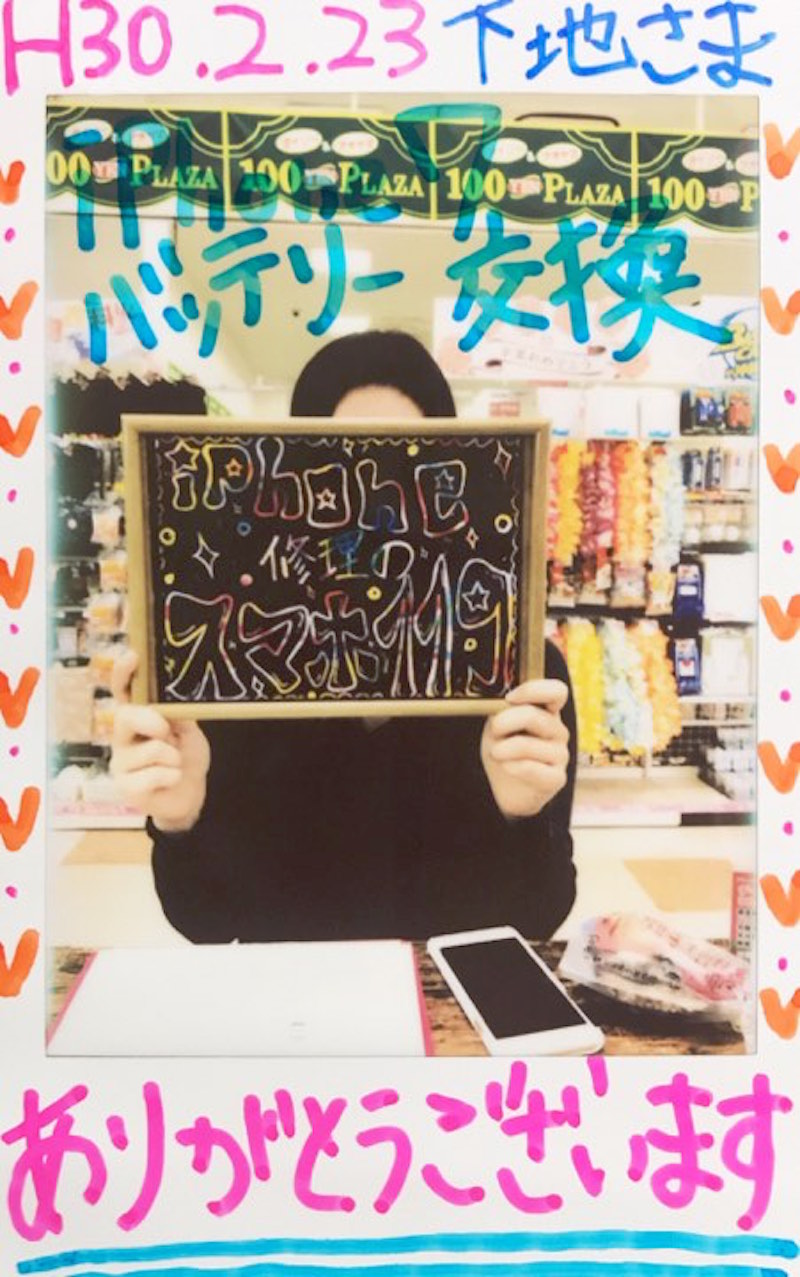 H30.2.23 下地さま
100 PLAZA 100 PLAZA 100 PLAZA 100 P
iPhone 7
バッテリー交換
iPhone
修理の
スマホ119
ありがとうございます